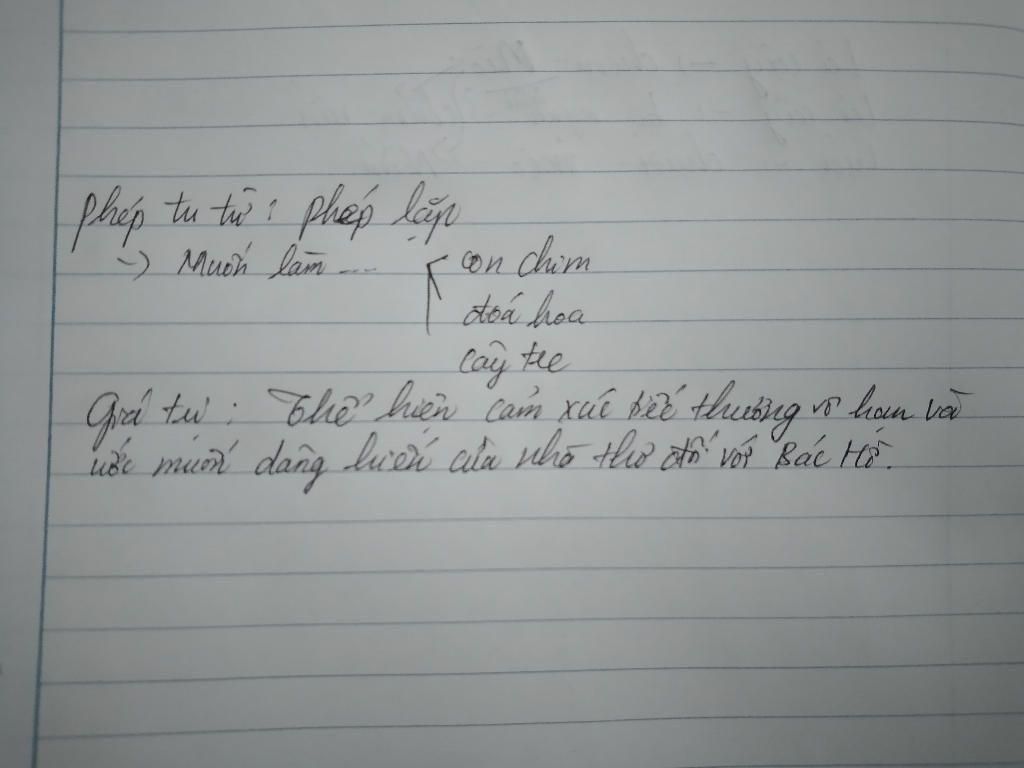 phép tu từ : phép lặp
-> Muốn làm .... con chim
đoá hoa
cây tre
Giá tri : Thể hiện cảm xúc tiếc thương vô hạn và
ước muốn dâng hiến của nhà thơ đối với Bác Hồ.